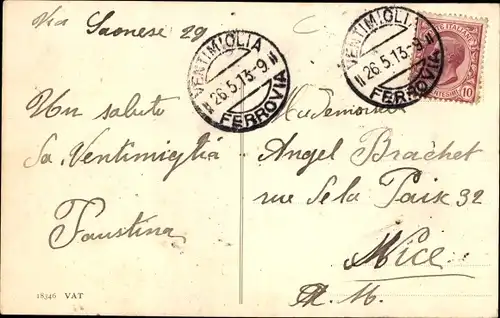 Via Saonese 29
VENTIMIGLIA
26.5.13-9
FERROVIA
VENTIMIGLIA
26.5.13-9
FERROVIA
POSTE ITALIANE
CENTESIMI 10
Un saluto
Da Ventimiglia
Faustina
Mademoiselle
Angel Brachet
rue De la Paix 32
Nice
A. M.
18346 VAT